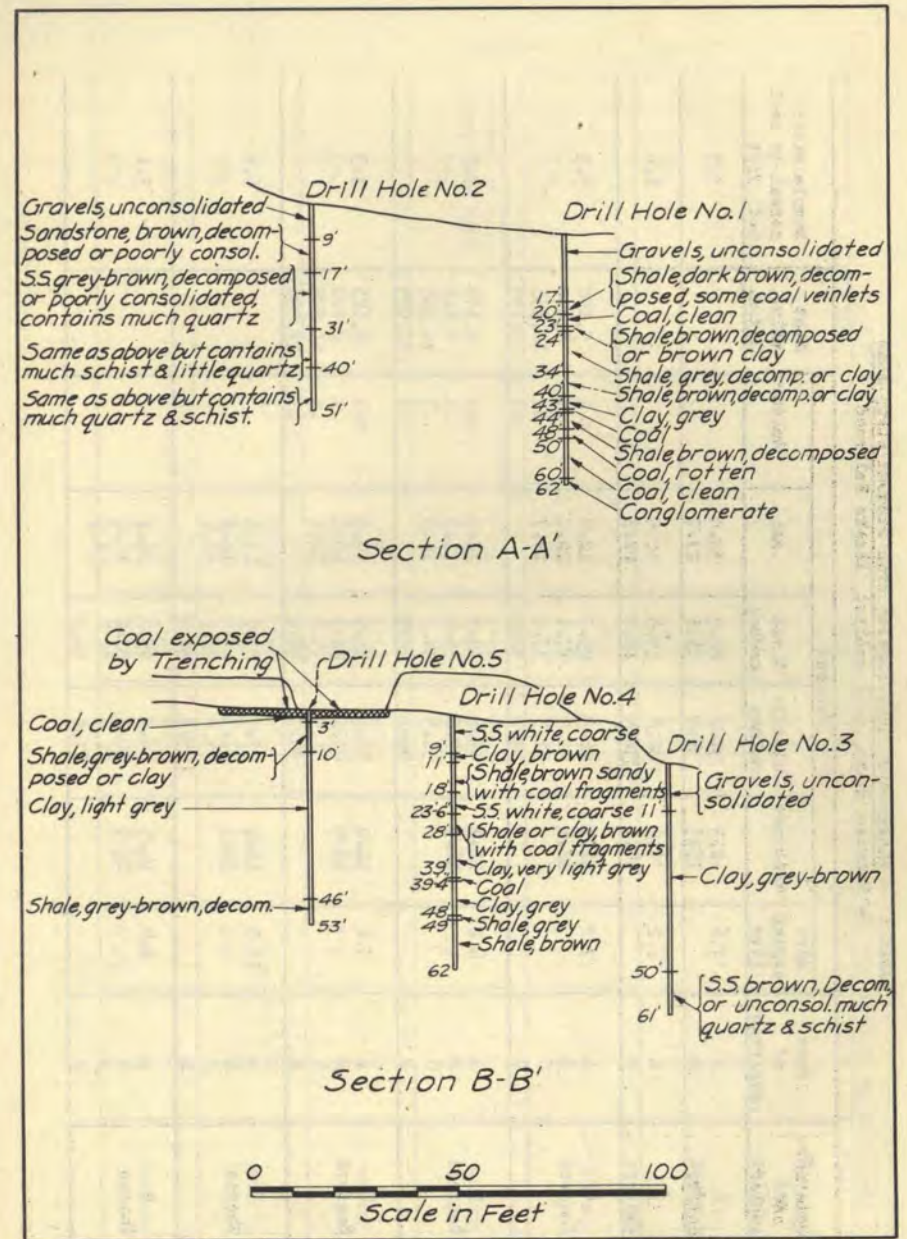 Drill Hole No.2
Gravels, unconsolidated
Sandstone, brown, decom-
posed or poorly consol.
S.S. grey-brown, decomposed
or poorly consolidated,
contains much quartz
Same as above but contains
much schist & little quartz
Same as above but contains
much quartz & schist.
9'
17'
31'
40'
51'
Drill Hole No.1
17'
20'
23'
24'
34'
40'
43'
44'
48'
50'
60'
62'
Gravels, unconsolidated
Shale, dark brown, decom-
posed, some coal veinlets
Coal, clean
Shale, brown, decomposed
or brown clay
Shale, grey, decomp. or clay
Shale, brown, decomp. or clay
Clay, grey
Coal
Shale, brown, decomposed
Coal, rotten
Coal, clean
Conglomerate
Section A-A'
Coal exposed
by Trenching
Drill Hole No.5
Coal, clean
Shale, grey-brown, decom-
posed or clay
Clay, light grey
Shale, grey-brown, decom.
3'
10'
46'
53'
Drill Hole No.4
9'
11'
18'
23'6"
28'
39'
39'4"
48'
49'
62'
S.S. white, coarse
Clay, brown
Shale, brown sandy
with coal fragments
S.S. white, coarse
Shale or clay, brown
with coal fragments
Clay, very light grey
Coal
Clay, grey
Shale, grey
Shale, brown
Drill Hole No.3
Gravels, uncon-
solidated
11'
Clay, grey-brown
50'
61'
S.S. brown, Decom.
or unconsol. much
quartz & schist
Section B-B'
0 50 100
Scale in Feet